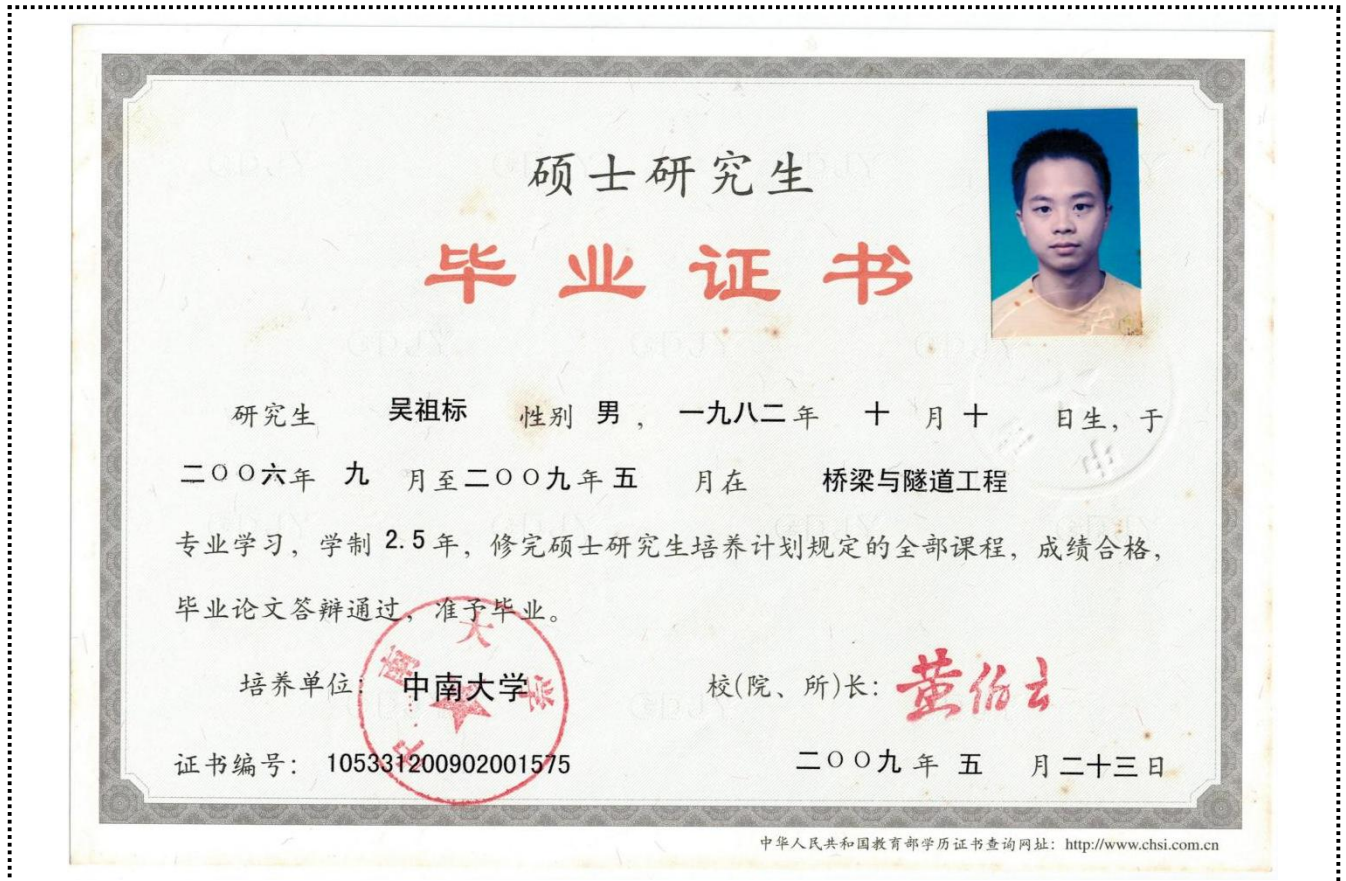 硕士研究生
毕业证书
研究生 吴祖标 性别 男 , 一九八二 年 十 月 十 日生, 于
二〇〇六年 九 月至 二〇〇九 年 五 月在 桥梁与隧道工程
专业学习, 学制 2.5 年, 修完硕士研究生培养计划规定的全部课程, 成绩合格,
毕业论文答辩通过, 准予毕业。
培养单位: 中南大学 校(院、所)长: 黄伯云
中南大学
证书编号: 105331200902001575 二〇〇九 年 五 月 二十三 日
中华人民共和国教育部学历证书查询网址: http://www.chsi.com.cn